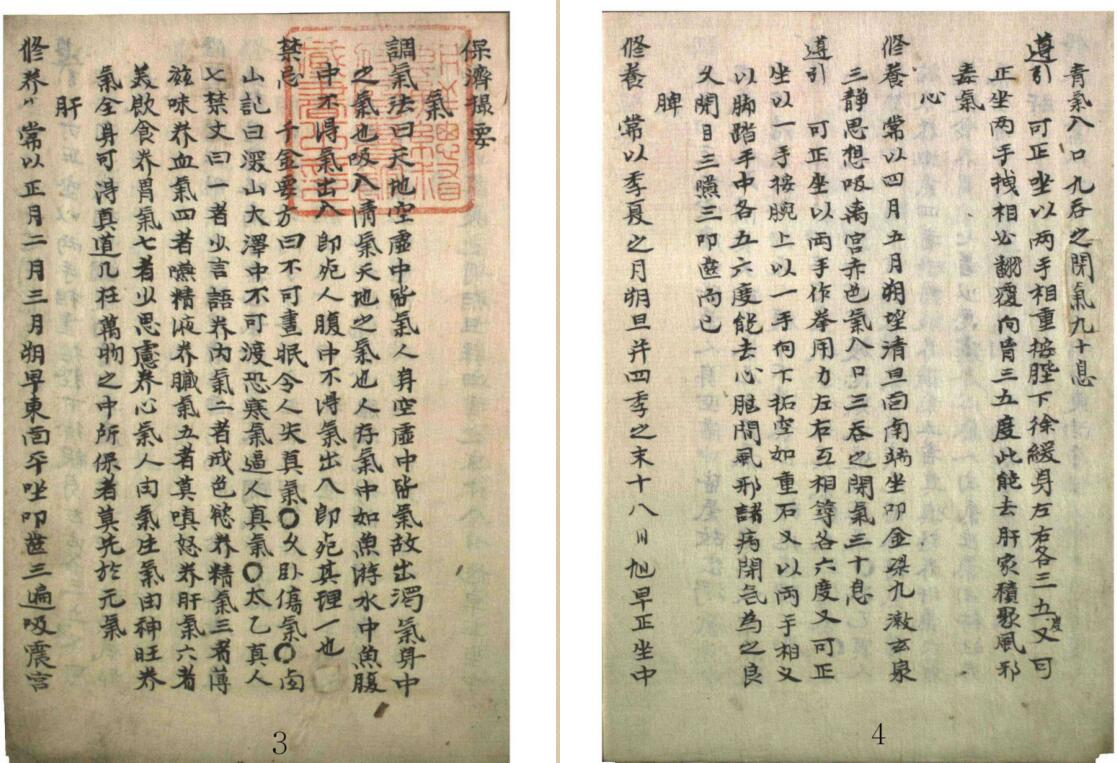 保濟撮要
氣
調氣法曰天地空虛中皆氣人身空虛中皆氣故出濁氣身中
之氣也吸入清氣天地之氣也人存氣中如魚游水中魚腹
中不得氣出入即死人腹中不得氣出入即死其理一也
禁忌 千金要方曰不可晝眠令人失真氣〇久臥傷氣〇卤
山記曰深山大澤中不可渡恐寒氣逼人真氣〇太乙真人
七禁文曰一者少言語养內氣二者戒色慾养精氣三者薄
滋味养血氣四者嚥精液养臟氣五者莫嗔怒养肝氣六者
美飲食养胃氣七者少思慮养心氣人由氣生氣由神旺养
氣全身可得真道几在萬物之中所保者莫先於元氣
肝
修养 常以正月二月三月朔早東面平坐叩齒三遍吸震宮
3
青氣入口九吞之閉氣九十息
遵引 可正坐以两手相重按䏶下徐緩身左右各三五度又可
正坐两手拽相叉翻覆向胷三五度此能去肝家積聚風邪
毒氣
心
修養 常以四月五月朔望清旦面南端坐叩金梁九漱玄泉
三静思想吸离宮赤色氣入口三吞之閉氣三十息
遵引 可正坐以两手作拳用力左右互相等各六度又可正
坐以一手按腕上以一手向下拓空如重石又以两手相叉
以脚踏手中各五六度能去心胞間風邪諸病閉气為之良
久閉目三嚥三叩齒而已
脾
修養 常以季夏之月朔旦并四季之末十八日旭早正坐中
4